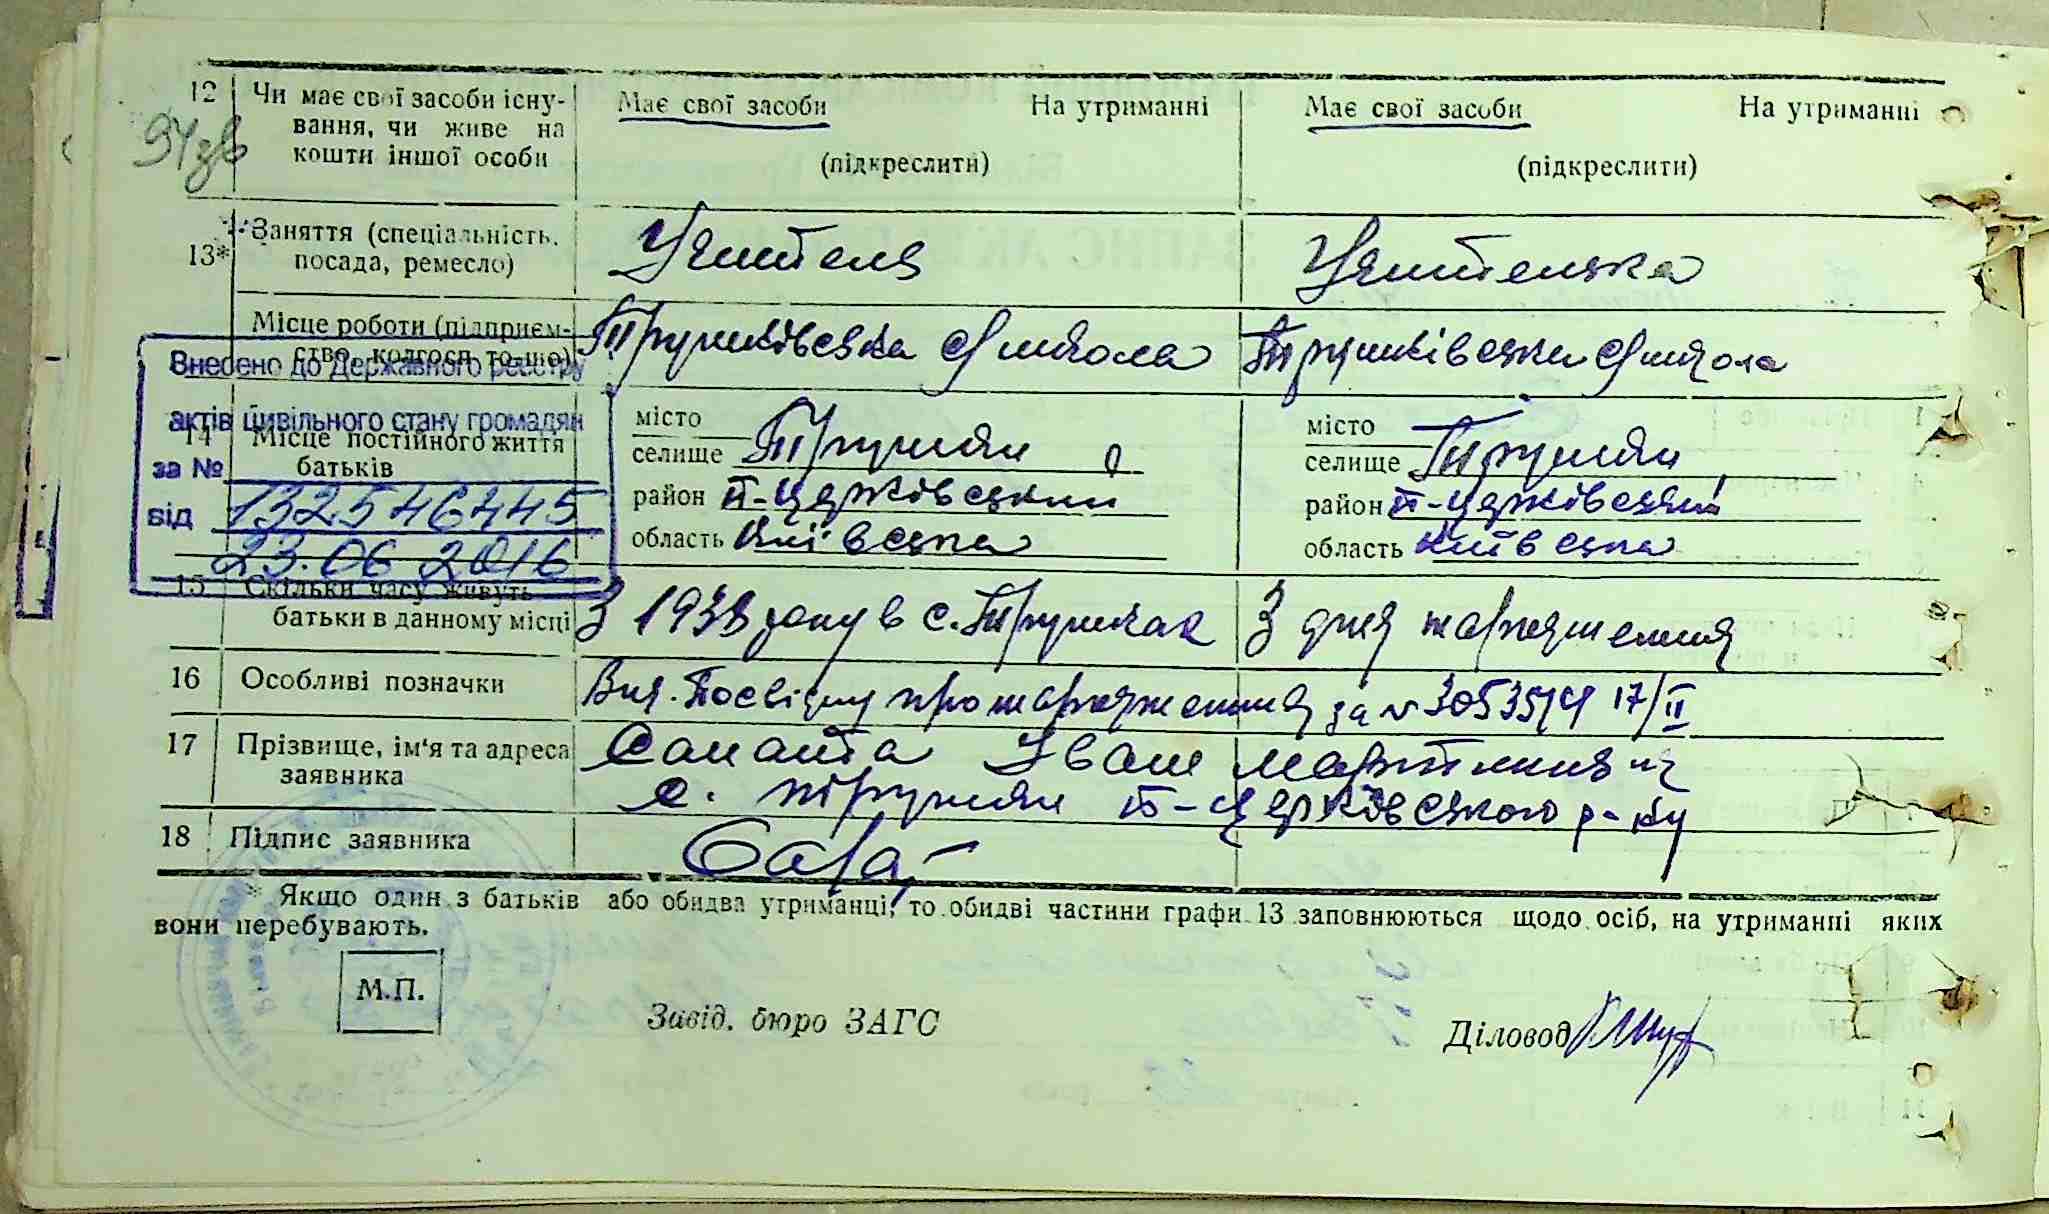 12 Чи має свої засоби існу- Має свої засоби На утриманні Має свої засоби На утриманні
вання, чи живе на
94зв кошти іншої особи (підкреслити) (підкреслити)
13* Заняття (спеціальність, Учитель Учителька
посада, ремесло)
Місце роботи (підприєм- Трушківська с/школа Трушківська с/школа
ство, колгосп то-що)
Внесено до Державного реєстру
актів цивільного стану громадян
за №
132546445
від
23.06 2016
14 Місце постійного життя місто місто
батьків селище Трушки селище Трушки
район Б-Церківський район Б-Церківський
область Київська область Київська
15 Скільки часу живуть З 1938 року в с. Трушках З дня народження
батьки в данному місці
16 Особливі позначки Вид. Посвідку про народження за № 17/II
17 Прізвище, ім'я та адреса Іван Мартинович
заявника с. Трушки Б-Церківського р-ну
18 Підпис заявника
* Якщо один з батьків або обидва утриманці, то обидві частини графи 13 заповнюються щодо осіб, на утриманні яких
вони перебувають.
М.П.
Завід. бюро ЗАГС Діловод